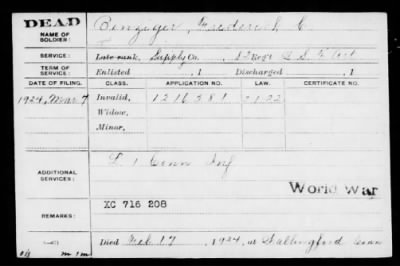 DEAD
NAME OF SOLDIER: Benziger, Frederick C.
SERVICE: Late rank, Supply Co. Regt U.S.
TERM OF SERVICE: Enlisted , 1 Discharged , 1
DATE OF FILING. CLASS. APPLICATION NO. LAW. CERTIFICATE NO.
1924, Mar 7 Invalid, 1216581
Widow,
Minor,
ADDITIONAL SERVICES: 1 Conn Inf
World War
REMARKS: XC 716 208
Died Feb 17, 1924, at Wallingford Conn